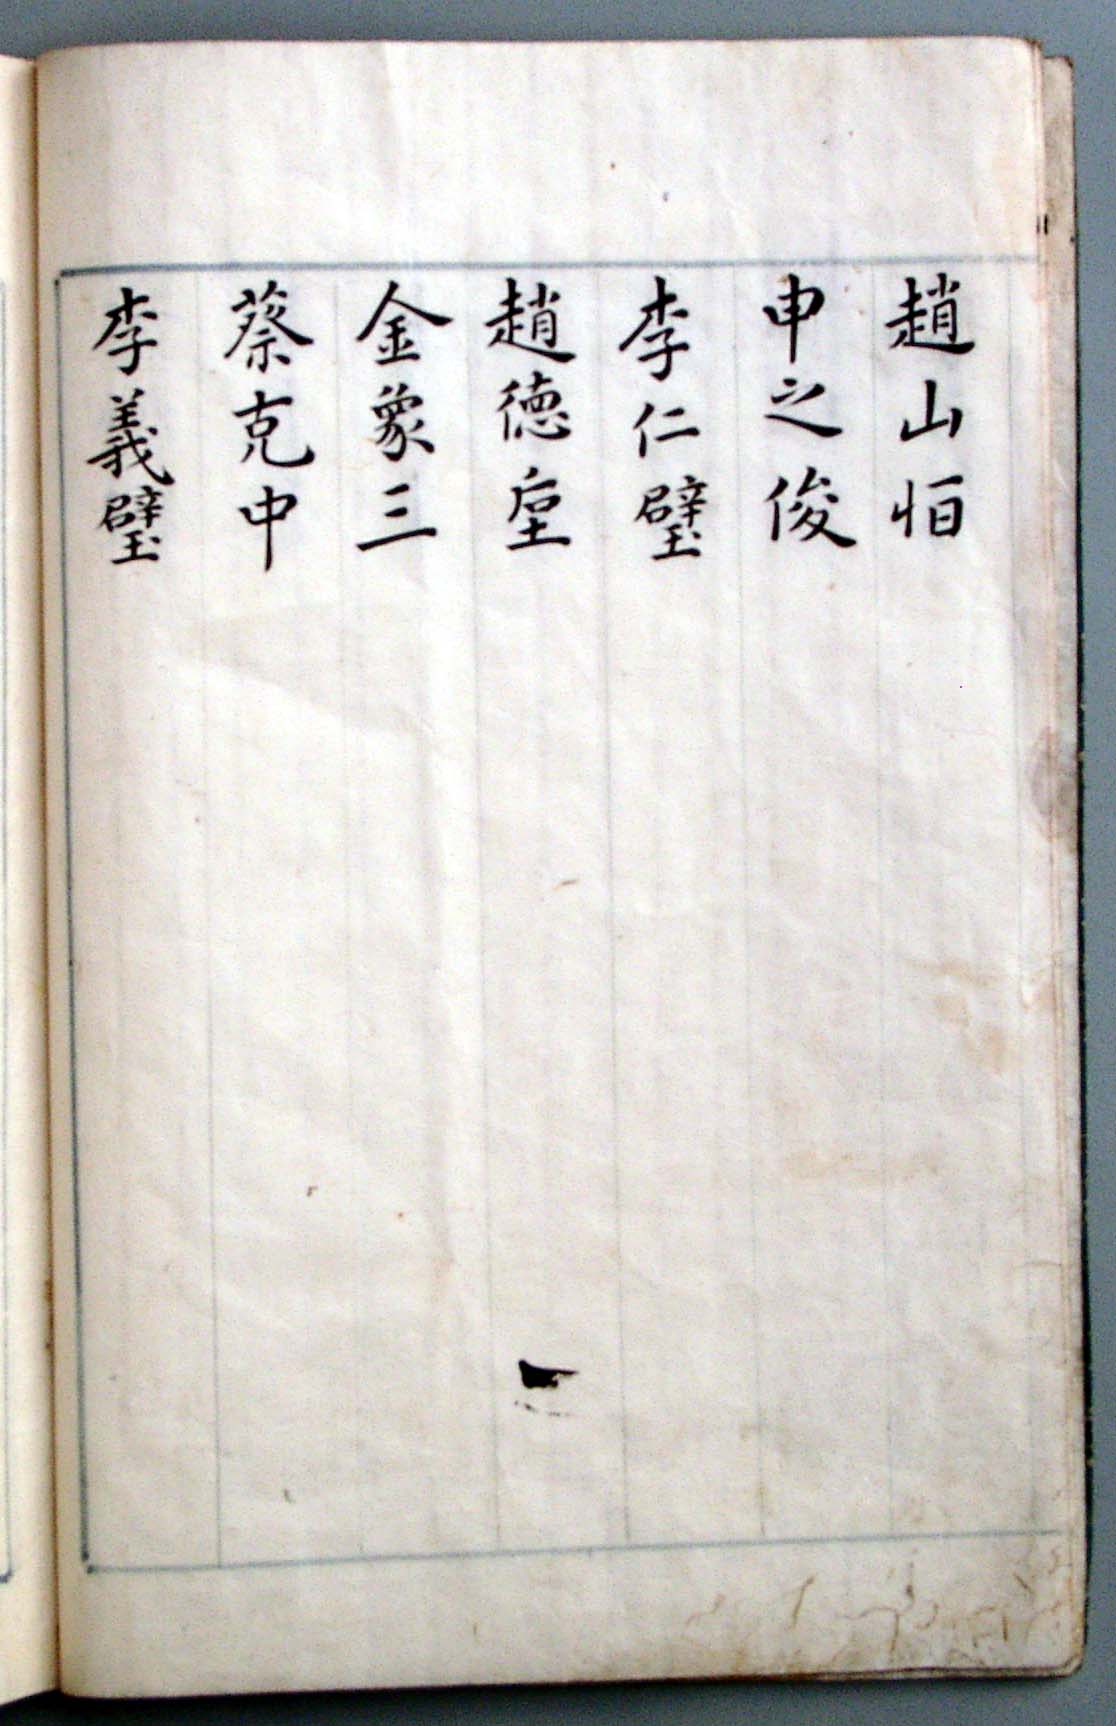 趙山恒
申之俊
李仁璧
趙德垕
金象三
蔡克中
李義璧